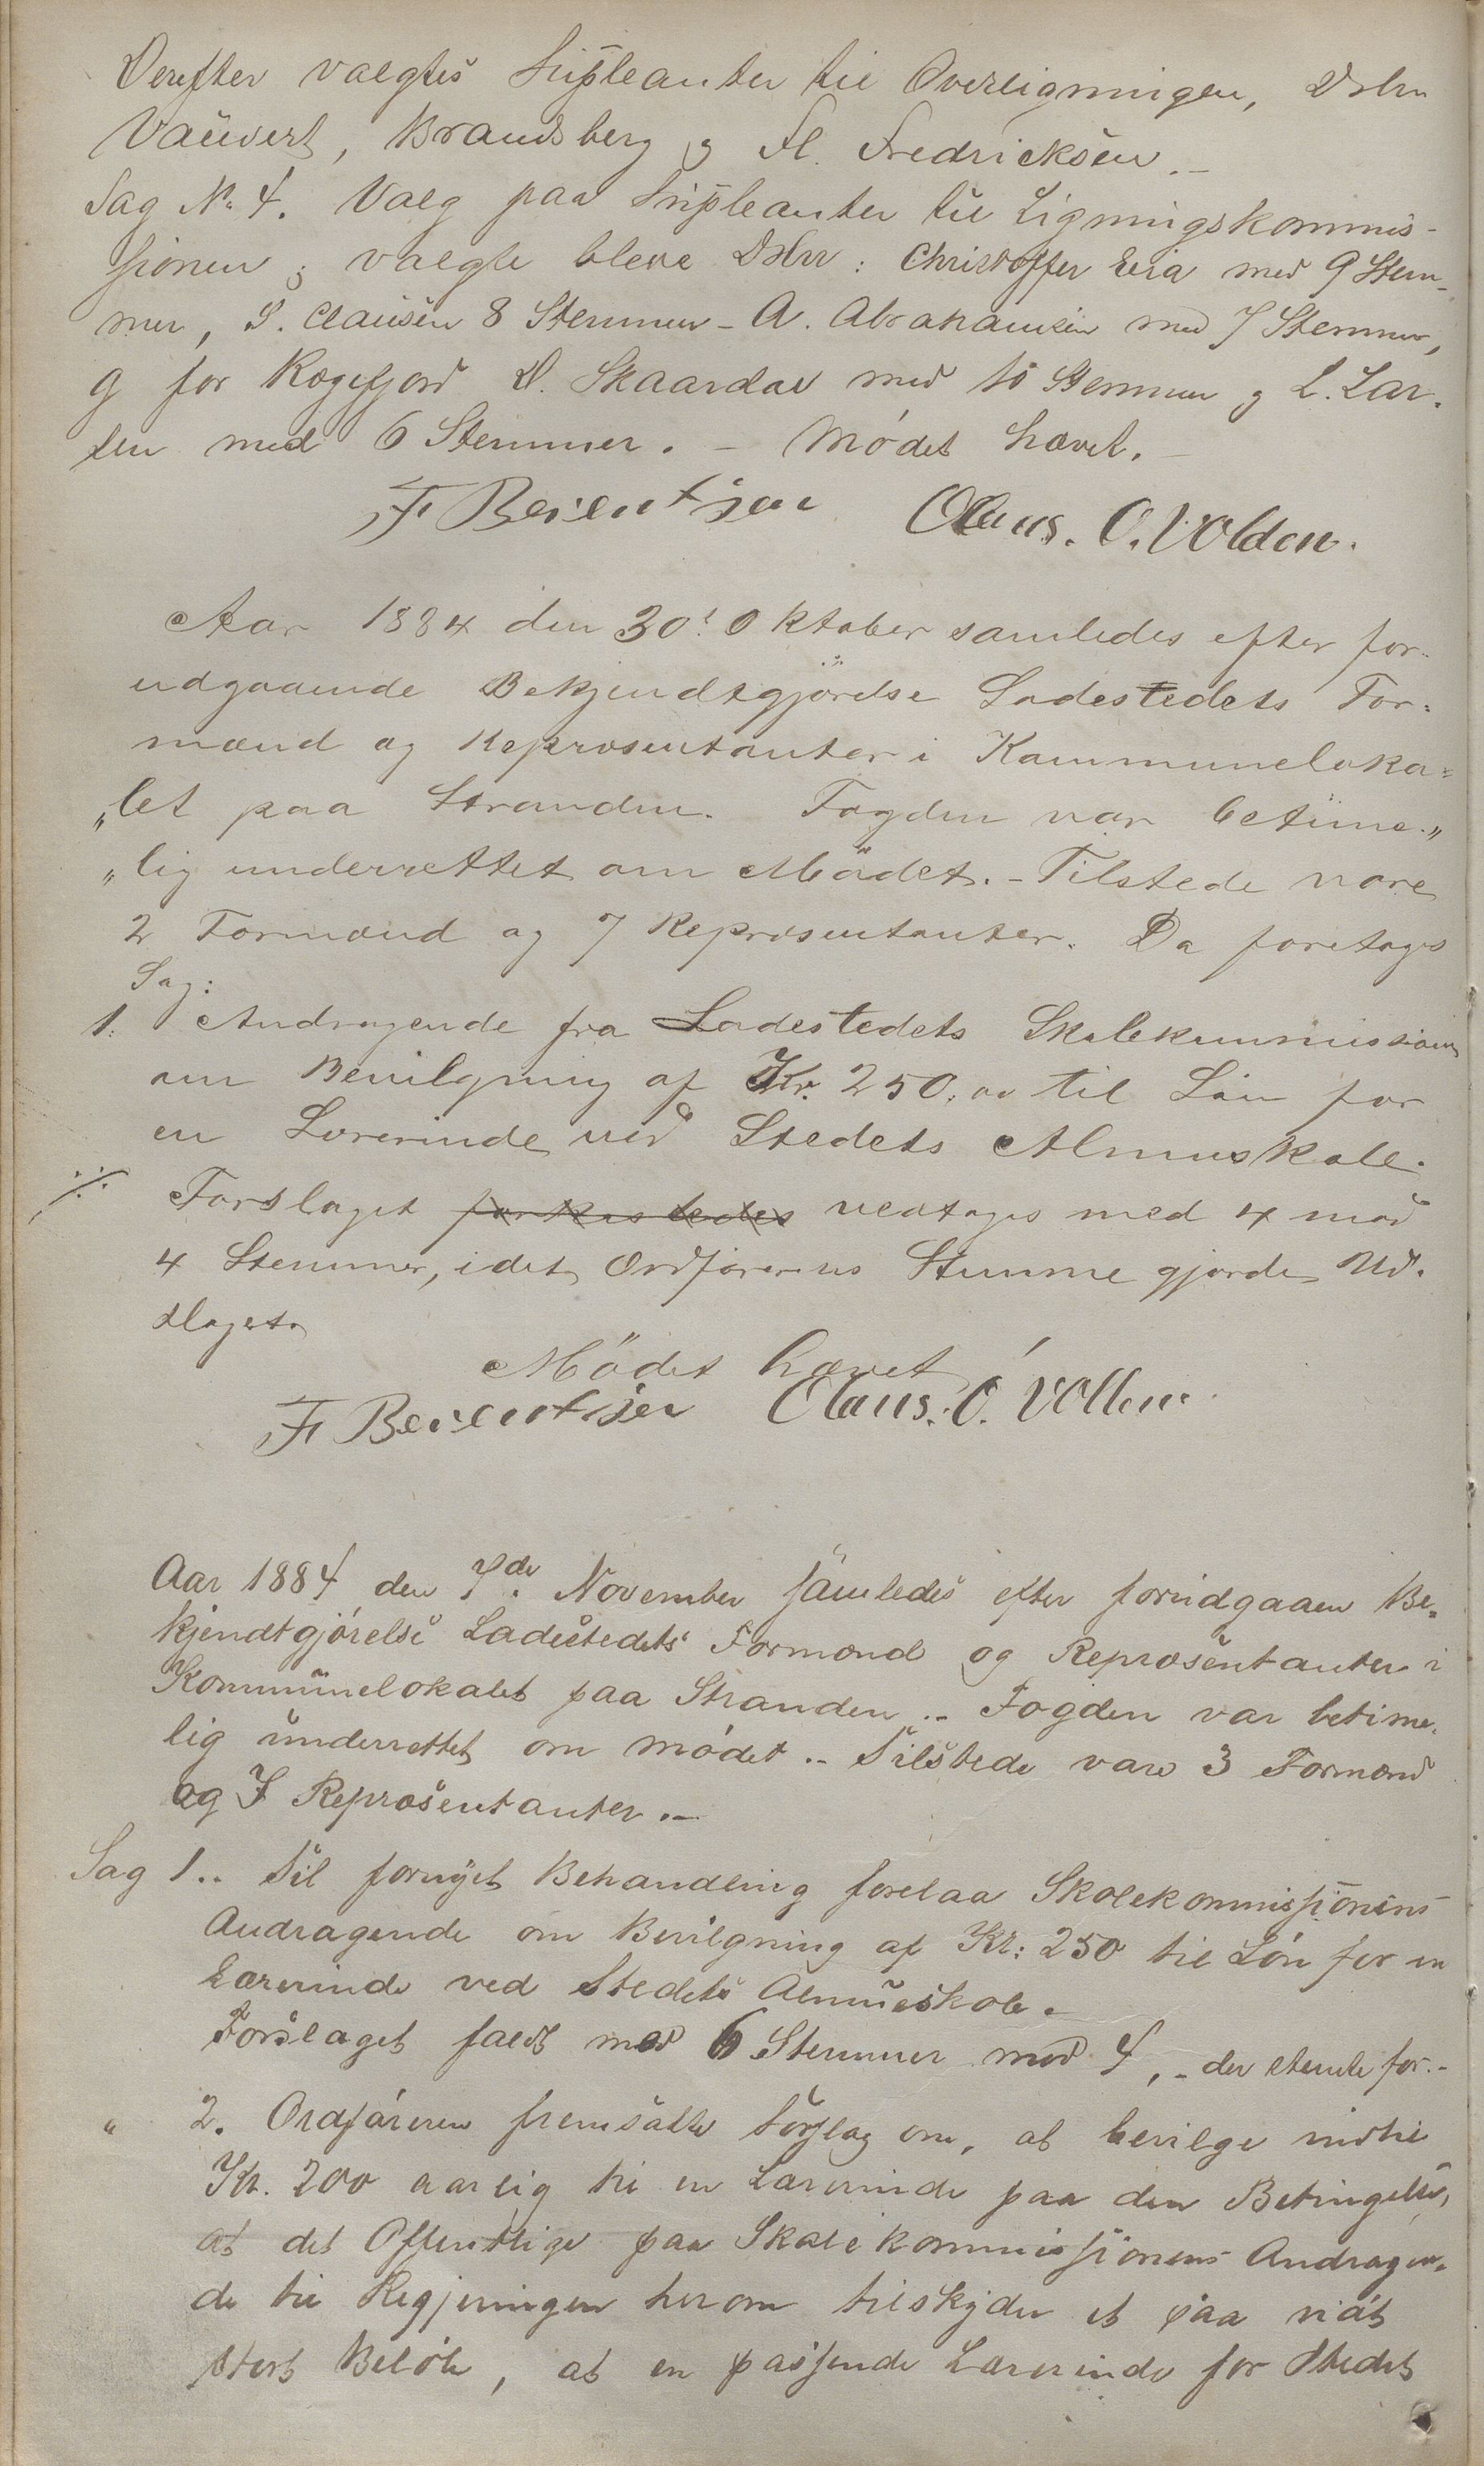 Derefter valgtes Supleanter til Overligningen, DHrr
Vauvert, Brandsberg og Fl. Fredricksen. -
Sag No 4. Valg paa Supleanter til Ligningskommis-
sionen; valgte bleve DHrr: Christoffer Eeia med 9 Stem-
mer, S. Clausen 8 Stemmer - A. Abrahamsen med 7 Stemmer,
og for Rægefjord D. Skaardal med 10 Stemmer og L. Lar-
sen med 6 Stemmer. - Mødet hævet. -
F Berentsen Olaus. O. Volden.
Aar 1884 den 30t Oktober samledes efter for-
udgaaende Bekjendtgjørelse Ladestedets For-
mænd og Repræsentanter i Kommuneloka=
"let paa Stranden. Fogden var betime-"
"lig underrettet om Mødet. - Tilstede vare
2 Formænd og 7 Repræsentanter. Da foretoges
Sag:
1: Andragende fra Ladestedets Skolekommission
om Bevilgning af Kr. 250,00 til Løn for
en Lærerinde ved Stedets Almuskole.
./. Forslaget forkastedes vedtoges med 4 mod
4 Stemmer, idet Ordførerens Stemme gjorde Ud-
slaget.
Mødet hævet
F Berentsen Olaus. O. Vollen
Aar 1884 den 7de November samledes efter forudgaaen Be-
kjendtgjørelse Ladestedets Formænd og Repræsentanter i
Kommunelokalet paa Stranden .- Fogden var betime-
lig underrettet om mødet .- Tilstede vare 3 Formænd
og 7 Repræsentanter .-
Sag 1.. Til fornyet Behandling forelaa Skolekommissionens
Andragende om Bevilgning af Kr: 250 til Løn for en
Lærerinde ved Stedets Almueskole. -
Forslaget faldt med 6 Stemmer mod 4, - der stemte for. -
" 2. Ordføreren fremsatte Forslag om, at bevilge indtil
Kr. 200 aarlig til en Lærerinde paa den Betingelse,
at det Offentlige paa Skolekommissionens Andragen-
de til Regjeringen herom tilskyder et saa vidt
stort Beløb, at en passende Lærerinde for Stedet